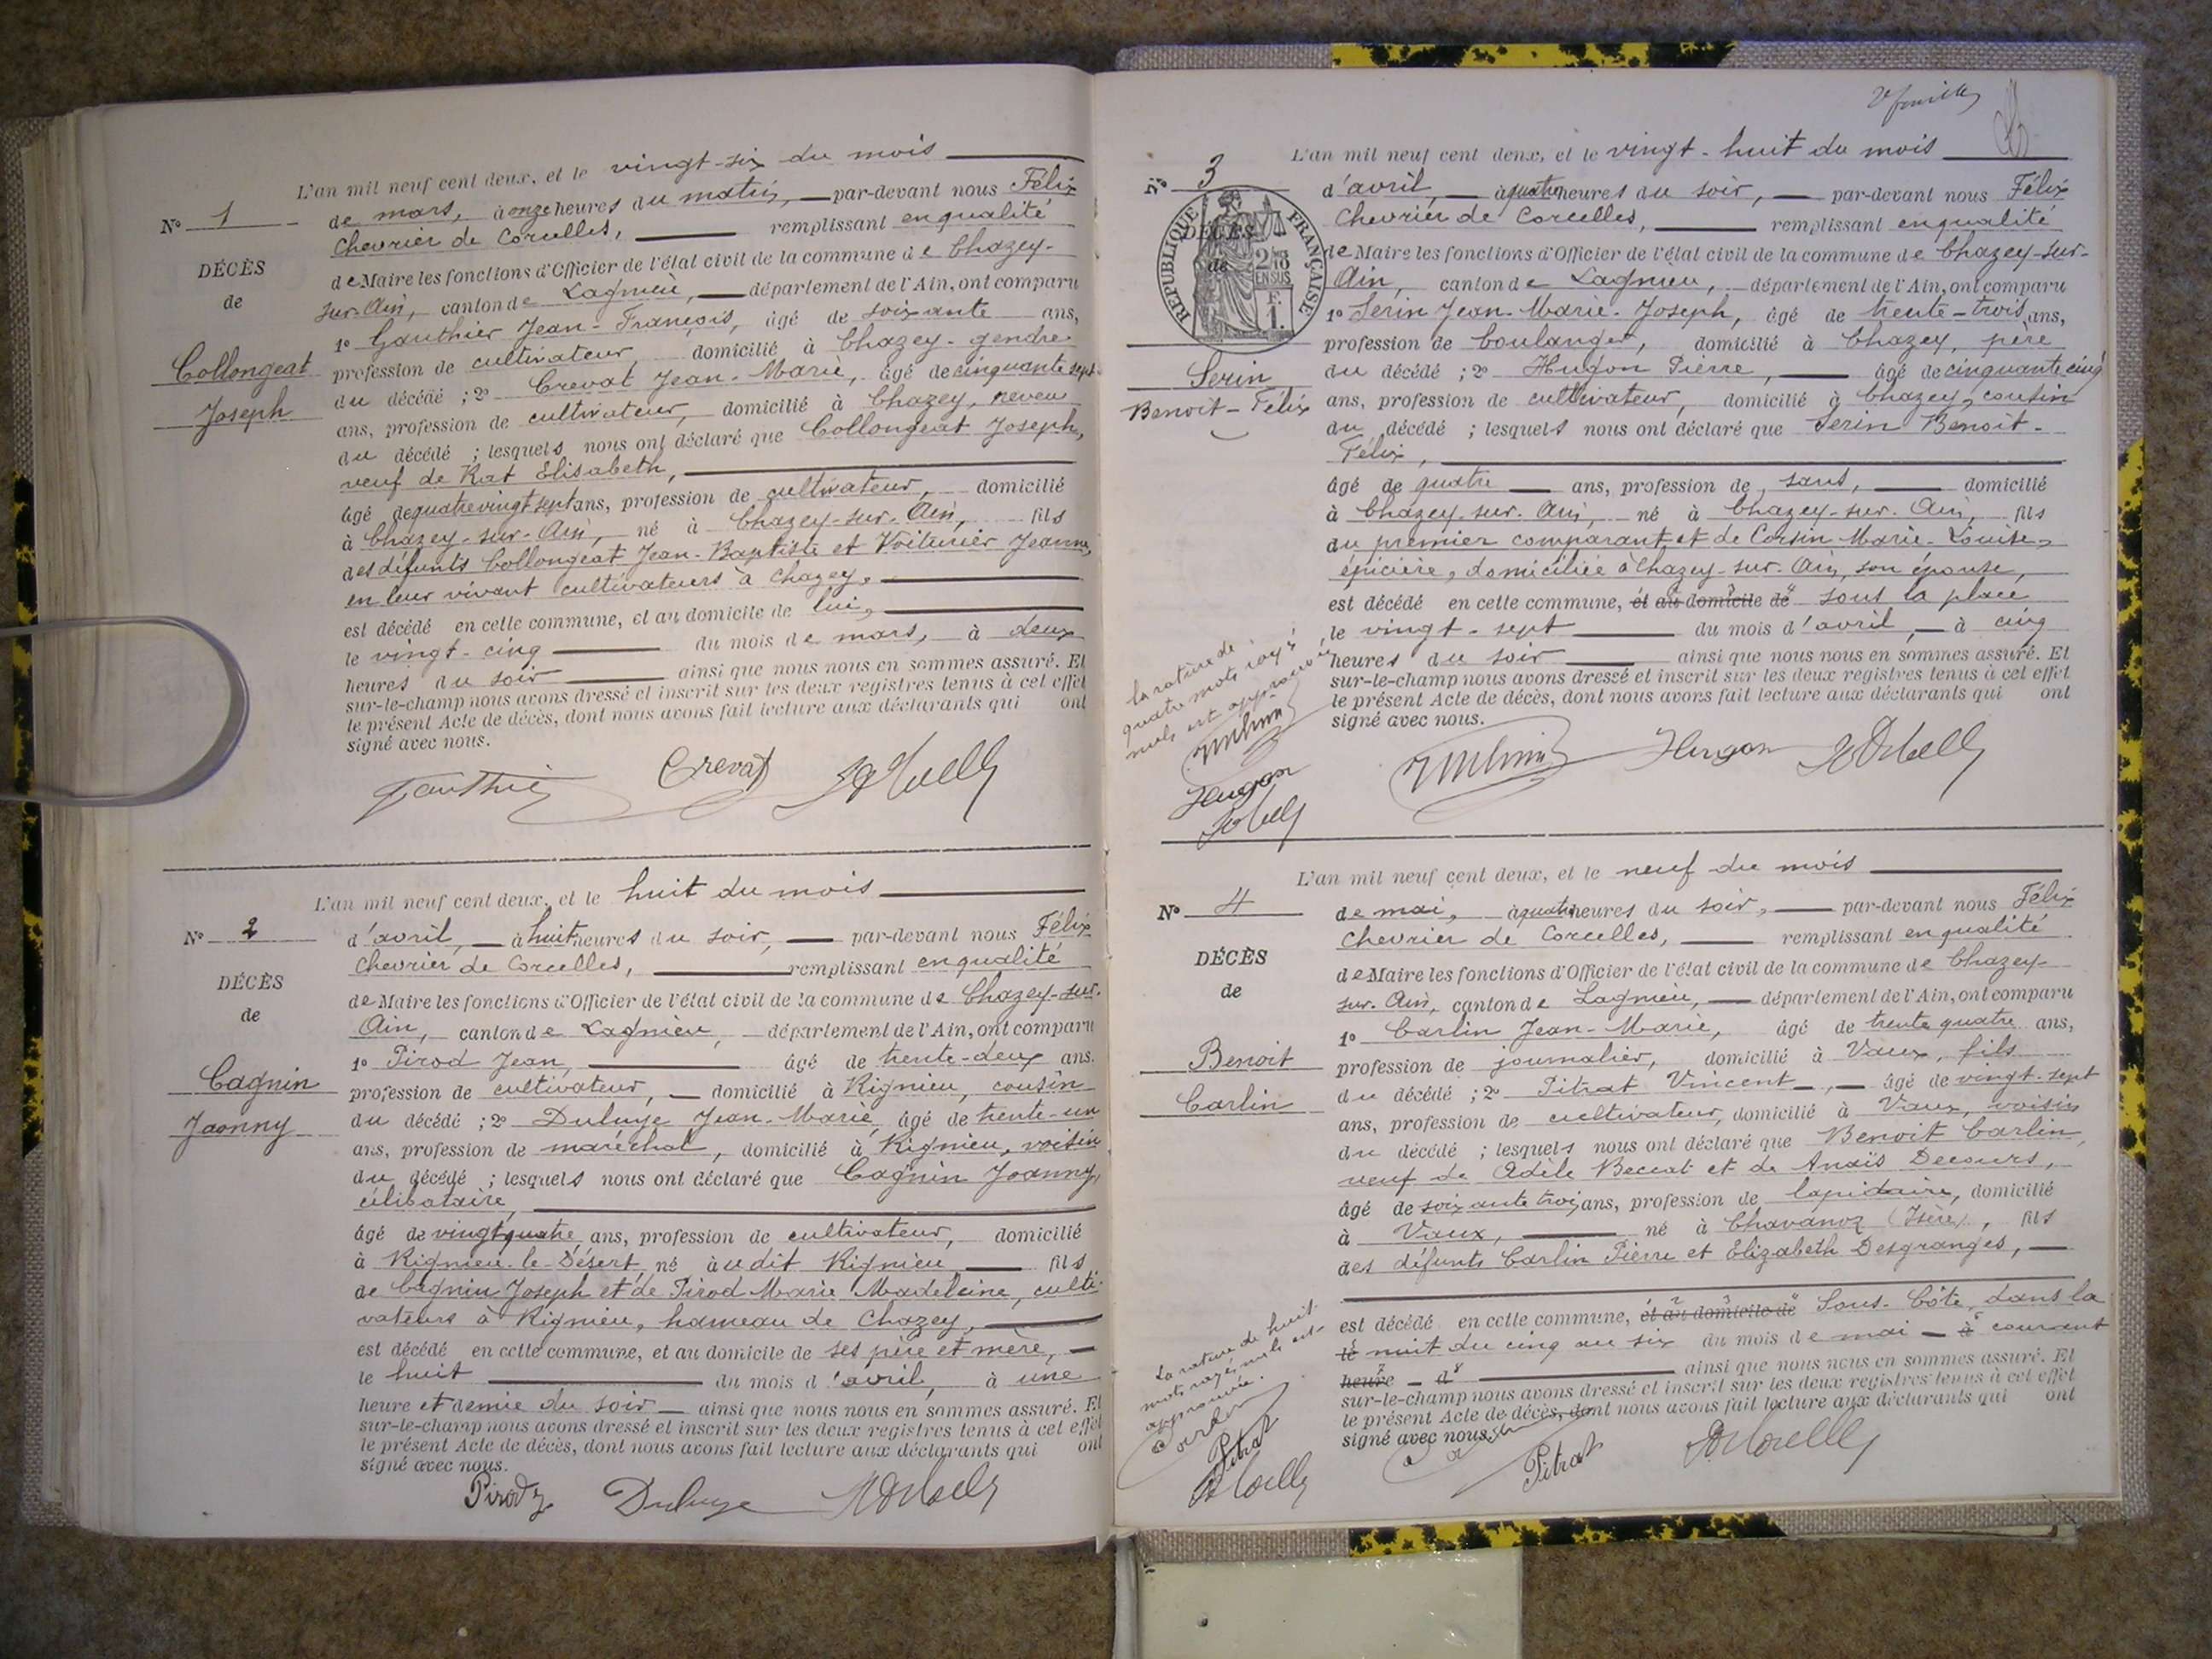 L'an mil neuf cent deux, et le vingt-six du mois
N° 1
de mars, à onze heures du matin, par-devant nous Félix
Chevrier de Corcelles, remplissant en qualité
DÉCÈS
de Maire les fonctions d'Officier de l'état civil de la commune de Chazey-
de
sur-Ain, canton de Lagnieu, département de l'Ain, ont comparu
1° Gauthier Jean-François, âgé de soixante ans,
Collongeat
profession de cultivateur domicilié à Chazey-gendre
Joseph
du décédé ; 2° Crevat Jean-Marie, âgé de cinquante sept
ans, profession de cultivateur, domicilié à Chazey, neveu
du décédé ; lesquels nous ont déclaré que Collongeat Joseph,
veuf de Rat Elisabeth,
âgé de quatre vingt sept ans, profession de cultivateur, domicilié
à Chazey-sur-Ain, né à Chazey-sur-Ain, fils
des défunts Collongeat Jean-Baptiste et Voiturier Jeanne,
en leur vivant cultivateurs à Chazey,
est décédé en cette commune, et au domicile de lui,
le vingt-cinq du mois de mars, à deux
heures du soir ainsi que nous nous en sommes assuré. Et
sur-le-champ nous avons dressé et inscrit sur les deux registres tenus à cet effet
le présent Acte de décès, dont nous avons fait lecture aux déclarants qui ont
signé avec nous.
Gauthier Crevat
L'an mil neuf cent deux, et le huit du mois
N° 2
d'avril, à huit heures du soir, par-devant nous Félix
Chevrier de Corcelles, remplissant en qualité
DÉCÈS
de Maire les fonctions d'Officier de l'état civil de la commune de Chazey-sur-
de
Ain, canton de Lagnieu, département de l'Ain, ont comparu
1° Pirod Jean, âgé de trente-deux ans.
Cagnin
profession de cultivateur, domicilié à Rignieu, cousin
Joanny
du décédé ; 2° Duluye Jean-Marie âgé de trente-un
ans, profession de maréchal, domicilié à Rignieu, voisin
du décédé ; lesquels nous ont déclaré que Cagnin Joanny,
célibataire,
âgé de vingt quatre ans, profession de cultivateur, domicilié
à Rignieu-le-Désert né à udit Rignieu fils
de Cagnin Joseph et de Pirod Marie Madeleine, culti-
vateurs à Rignieu, hameau de Chazey,
est décédé en cette commune, et au domicile de ses père et mère,
le huit du mois d'avril, à une
heure et demie du soir ainsi que nous nous en sommes assuré. Et
sur-le-champ nous avons dressé et inscrit sur les deux registres tenus à cet effet
le présent Acte de décès, dont nous avons fait lecture aux déclarants qui ont
signé avec nous.
Pirod Duluye
2e feuille
L'an mil neuf cent deux, et le vingt-huit du mois
N° 3
d'avril, à quatre heures du soir, par-devant nous Félix
Chevrier de Corcelles, remplissant en qualité
RÉPUBLIQUE FRANÇAISE
DÉCÈS
de
EN SUS
de Maire les fonctions d'Officier de l'état civil de la commune de Chazey-sur-
Ain, canton de Lagnieu, département de l'Ain, ont comparu
1° Serin Jean-Marie-Joseph, âgé de trente-trois ans,
profession de boulanger, domicilié à Chazey, père
Serin
du décédé ; 2° Hugon Pierre, âgé de cinquante cinq
Benoit-Félix
ans, profession de cultivateur, domicilié à Chazey, cousin
du décédé ; lesquels nous ont déclaré que Serin Benoît-
Félix,
âgé de quatre ans, profession de sans, domicilié
à Chazey-sur-Ain, né à Chazey-sur-Ain, fils
du premier comparant et de Corsin Marie-Louise,
épicière, domiciliée à Chazey-sur-Ain, son épouse,
est décédé en cette commune, et au domicile de sous la place
le vingt-sept du mois d'avril, à cinq
heures du soir ainsi que nous nous en sommes assuré. Et
sur-le-champ nous avons dressé et inscrit sur les deux registres tenus à cet effet
le présent Acte de décès, dont nous avons fait lecture aux déclarants qui ont
signé avec nous.
La rature de
quatre mots rayés
nuls est approuvée
Hugon
Hugon
L'an mil neuf cent deux, et le neuf du mois
N° 4
de mai, à quatre heures du soir, par-devant nous Félix
Chevrier de Corcelles, remplissant en qualité
DÉCÈS
de Maire les fonctions d'Officier de l'état civil de la commune de Chazey-
de
sur-Ain, canton de Lagnieu, département de l'Ain, ont comparu
1° Carlin Jean-Marie, âgé de trente quatre ans,
Benoit
profession de journalier, domicilié à Vaux, fils
Carlin
du décédé ; 2° Pitrat Vincent, âgé de vingt-sept
ans, profession de cultivateur, domicilié à Vaux, voisin
du décédé ; lesquels nous ont déclaré que Benoit Carlin,
veuf de Adèle Beccat et de Anaïs Decours,
âgé de soixante trois ans, profession de lapidaire, domicilié
à Vaux, né à Chavanoz (Isère), fils
des défunts Carlin Pierre et Elizabeth Desgranges,
est décédé en cette commune, et au domicile de Sous-Côte, dans la
le nuit du cinq au six du mois de mai à courant
heure d ainsi que nous nous en sommes assuré. Et
sur-le-champ nous avons dressé et inscrit sur les deux registres tenus à cet effet
le présent Acte de décès, dont nous avons fait lecture aux déclarants qui ont
signé avec nous.
La rature de huit
mots rayés nuls est
approuvée.
Pitrat
Pitrat